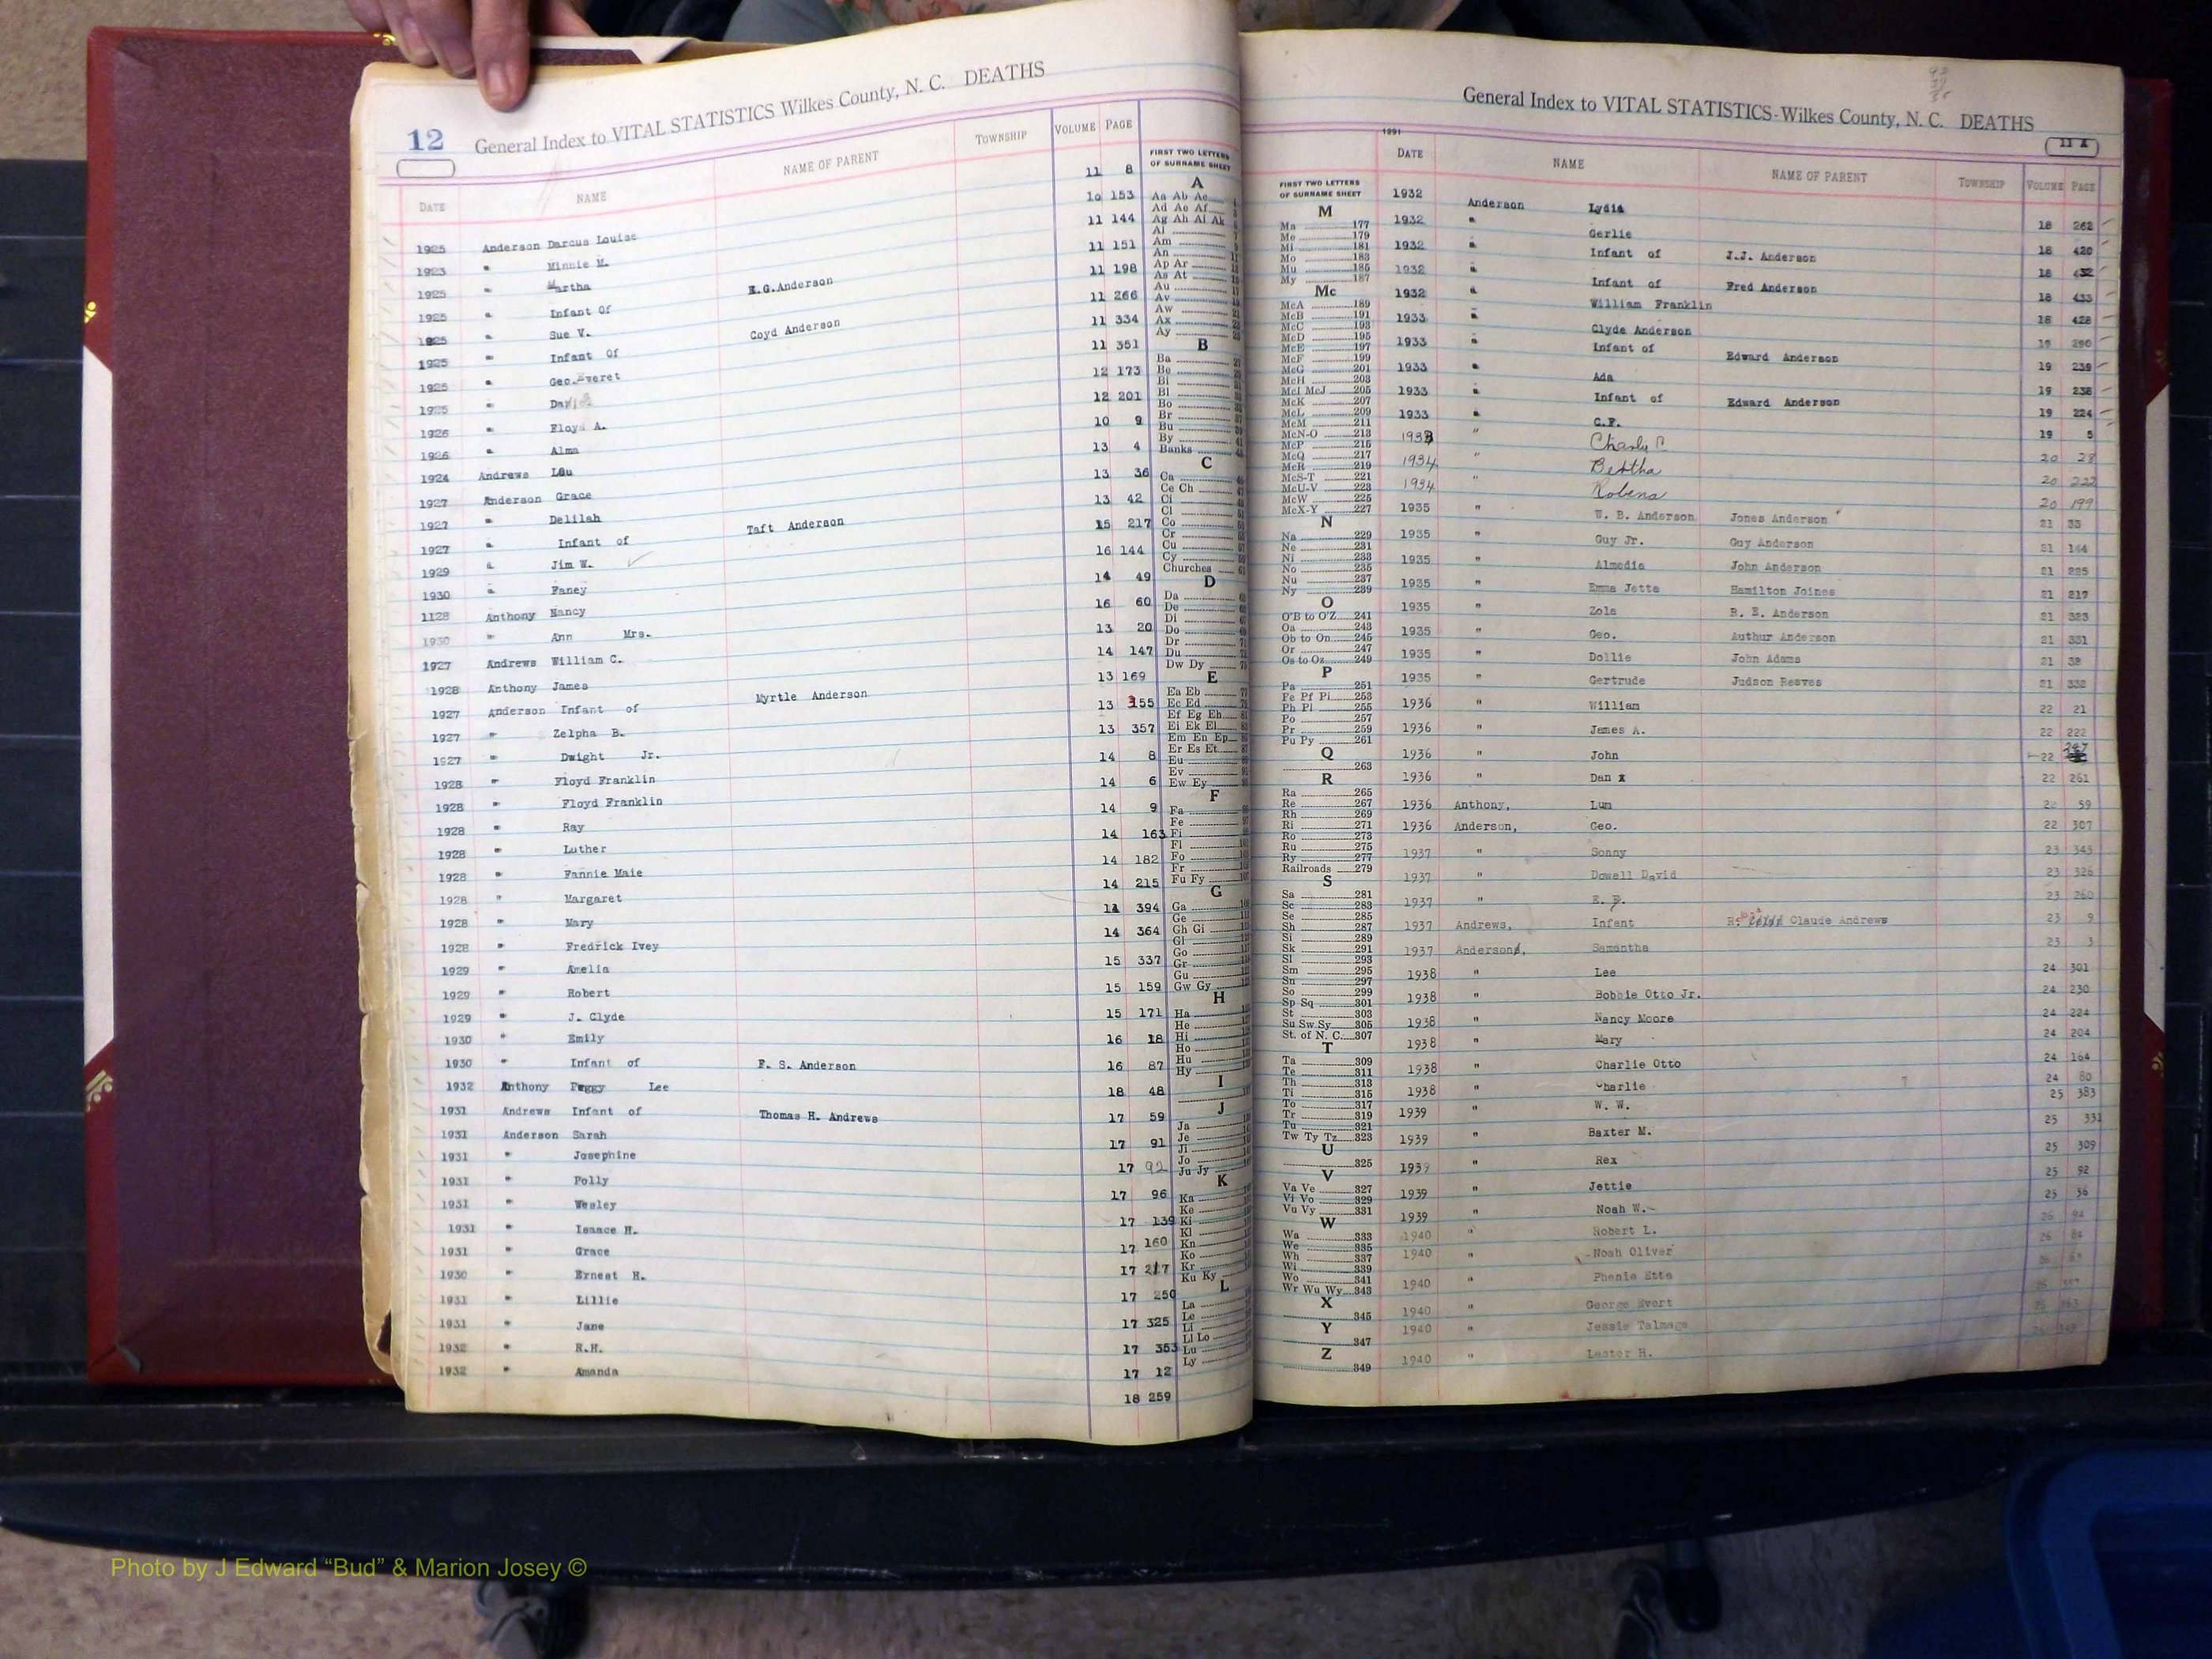 12 General Index to VITAL STATISTICS Wilkes County, N. C. DEATHS
DATE NAME NAME OF PARENT TOWNSHIP VOLUME PAGE
1925 Anderson Darcus Louise 11 8
1923 " Minnie M. 10 153
1925 " Martha 11 144
1925 " Infant Of E.G.Anderson 11 151
1925 " Sue V. 11 198
1925 " Infant Of Coyd Anderson 11 266
1925 " Geo. Everet 11 334
1925 " 11 351
1926 " Floyd A. 12 173
1926 " Alma 12 201
1924 Andrews Lou 10 9
1927 Anderson Grace 13 4
1927 " Delilah 13 36
1927 " Infant of Taft Anderson 13 42
1929 " Jim W. 15 217
1930 " Faney 16 144
1128 Anthony Nancy 14 49
1930 " Ann Mrs. 16 60
1927 Andrews William C. 13 20
1928 Anthony James 14 147
1927 Anderson Infant of Myrtle Anderson 13 169
1927 " Zelpha B. 13 155
1927 " Dwight Jr. 13 357
1928 " Floyd Franklin 14 8
1928 " Floyd Franklin 14 6
1928 " Ray 14 9
1928 " Luther 14 163
1928 " Fannie Maie 14 182
1928 " Margaret 14 215
1928 " Mary 394
1928 " Fredrick Ivey 14 364
1929 " Amelia 15 337
1929 " Robert 15 159
1929 " J. Clyde 15 171
1930 " Emily 16 18
1930 " Infant of F. S. Anderson 16 87
1932 Anthony Peggy Lee 18 48
1931 Andrews Infant of Thomas H. Andrews 17 59
1931 Anderson Sarah 17 91
1931 " Josephine 17 92
1931 " Polly 17 96
1931 " Wesley 17 139
1931 " Isaace H. 17 160
1931 " Grace 17 217
1930 " Ernest H. 17 250
1931 " Lillie 17 325
1931 " Jane 17 353
1932 " R.H. 17 12
1932 " Amanda 18 259
FIRST TWO LETTERS
OF SURNAME SHEET
A
Aa Ab Ac
Ad Ae Af
Ag Ah Ai Ak
Al
Am
An
Ap Ar
As At
Au
Av
Aw
Ax
Ay
B
Ba
Be
Bi
Bl
Bo
Br
Bu
By
Banks
C
Ca
Ce Ch
Ci
Cl
Co
Cr
Cu
Cy
Churches
D
Da
De
Di
Do
Dr
Du
Dw Dy
E
Ea Eb
Ec Ed
Ef Eg Eh
Ei Ek El
Em En Ep
Er Es Et
Eu
Ev
Ew Ey
F
Fa
Fe
Fi
Fl
Fo
Fr
Fu Fy
G
Ga
Ge
Gh Gi
Gl
Go
Gr
Gu
Gw Gy
H
Ha
He
Hi
Ho
Hu
Hy
I
J
Ja
Je
Ji
Jo
Ju Jy
K
Ka
Ke
Ki
Kl
Kn
Ko
Kr
Ku Ky
L
La
Le
Li
Ll Lo
Lu
Ly
General Index to VITAL STATISTICS-Wilkes County, N. C. DEATHS
11 A
1291
FIRST TWO LETTERS
OF SURNAME SHEET
M
Ma 177
Me 179
Mi 181
Mo 183
Mu 185
My 187
Mc
McA 189
McB 191
McC 193
McD 195
McE 197
McF 199
McG 201
McH 203
McI McJ 205
McK 207
McL 209
McM 211
McN-O 213
McP 215
McQ 217
McR 219
McS-T 221
McU-V 223
McW 225
McX-Y 227
N
Na 229
Ne 231
Ni 233
No 235
Nu 237
Ny 239
O
O'B to O'Z 241
Oa 243
Ob to On 245
Or 247
Os to Oz 249
P
Pa 251
Pe Pf Pi 253
Ph Pl 255
Po 257
Pr 259
Pu Py 261
Q
263
R
Ra 265
Re 267
Rh 269
Ri 271
Ro 273
Ru 275
Ry 277
Railroads 279
S
Sa 281
Sc 283
Se 285
Sh 287
Si 289
Sk 291
Sl 293
Sm 295
Sn 297
So 299
Sp Sq 301
St 303
Su Sw Sy 305
St. of N. C. 307
T
Ta 309
Te 311
Th 313
Ti 315
To 317
Tr 319
Tu 321
Tw Ty Tz 323
U
325
V
Va Ve 327
Vi Vo 329
Vu Vy 331
W
Wa 333
We 335
Wh 337
Wi 339
Wo 341
Wr Wu Wy 343
X
345
Y
347
Z
349
DATE NAME NAME OF PARENT TOWNSHIP VOLUME PAGE
1932 Anderson Lydia 18 262
1932 " Gerlie 18 420
1932 " Infant of J.J. Anderson 18 432
1932 " Infant of Fred Anderson 18 433
1932 " William Franklin 18 428
1933 " Clyde Anderson 19 290
1933 " Infant of Edward Anderson 19 239
1933 " Ada 19 238
1933 " Infant of Edward Anderson 19 224
1933 " C.F. 19 5
1933 " Charly C 20 28
1934 " Bertha 20 222
1934 " Robena 20 199
1935 " W. B. Anderson Jones Anderson 21 33
1935 " Guy Jr. Guy Anderson 21 144
1935 " Almedia John Anderson 21 225
1935 " Emma Jette Hamilton Joines 21 217
1935 " Zola R. E. Anderson 21 323
1935 " Geo. Authur Anderson 21 331
1935 " Dollie John Adams 21 38
1935 " Gertrude Judson Reeves 21 332
1936 " William 22 21
1936 " James A. 22 222
1936 " John 22
1936 " Dan x 22 261
1936 Anthony, Lum 22 59
1936 Anderson, Geo. 22 307
1937 " Sonny 23 345
1937 " Dowell David 23 326
1937 " E. P. 23 260
1937 Andrews, Infant Claude Andrews 23 9
1937 Anderson, Samantha 23 3
1938 " Lee 24 301
1938 " Bobbie Otto Jr. 24 230
1938 " Nancy Moore 24 224
1938 " Mary 24 204
1938 " Charlie Otto 24 164
1938 " Charlie 24 80
1939 " W. W. 25 383
1939 " Baxter M. 25 331
1939 " Rex 25 309
1939 " Jettie 25 92
1939 " Noah W. 25 56
1940 " Robert L. 26 94
1940 " Noah Oliver 26 84
1940 " Phenie Etta 26
1940 " George Evert
1940 " Jessie Talmage
1940 " Lester H.
Photo by J Edward “Bud” & Marion Josey ©